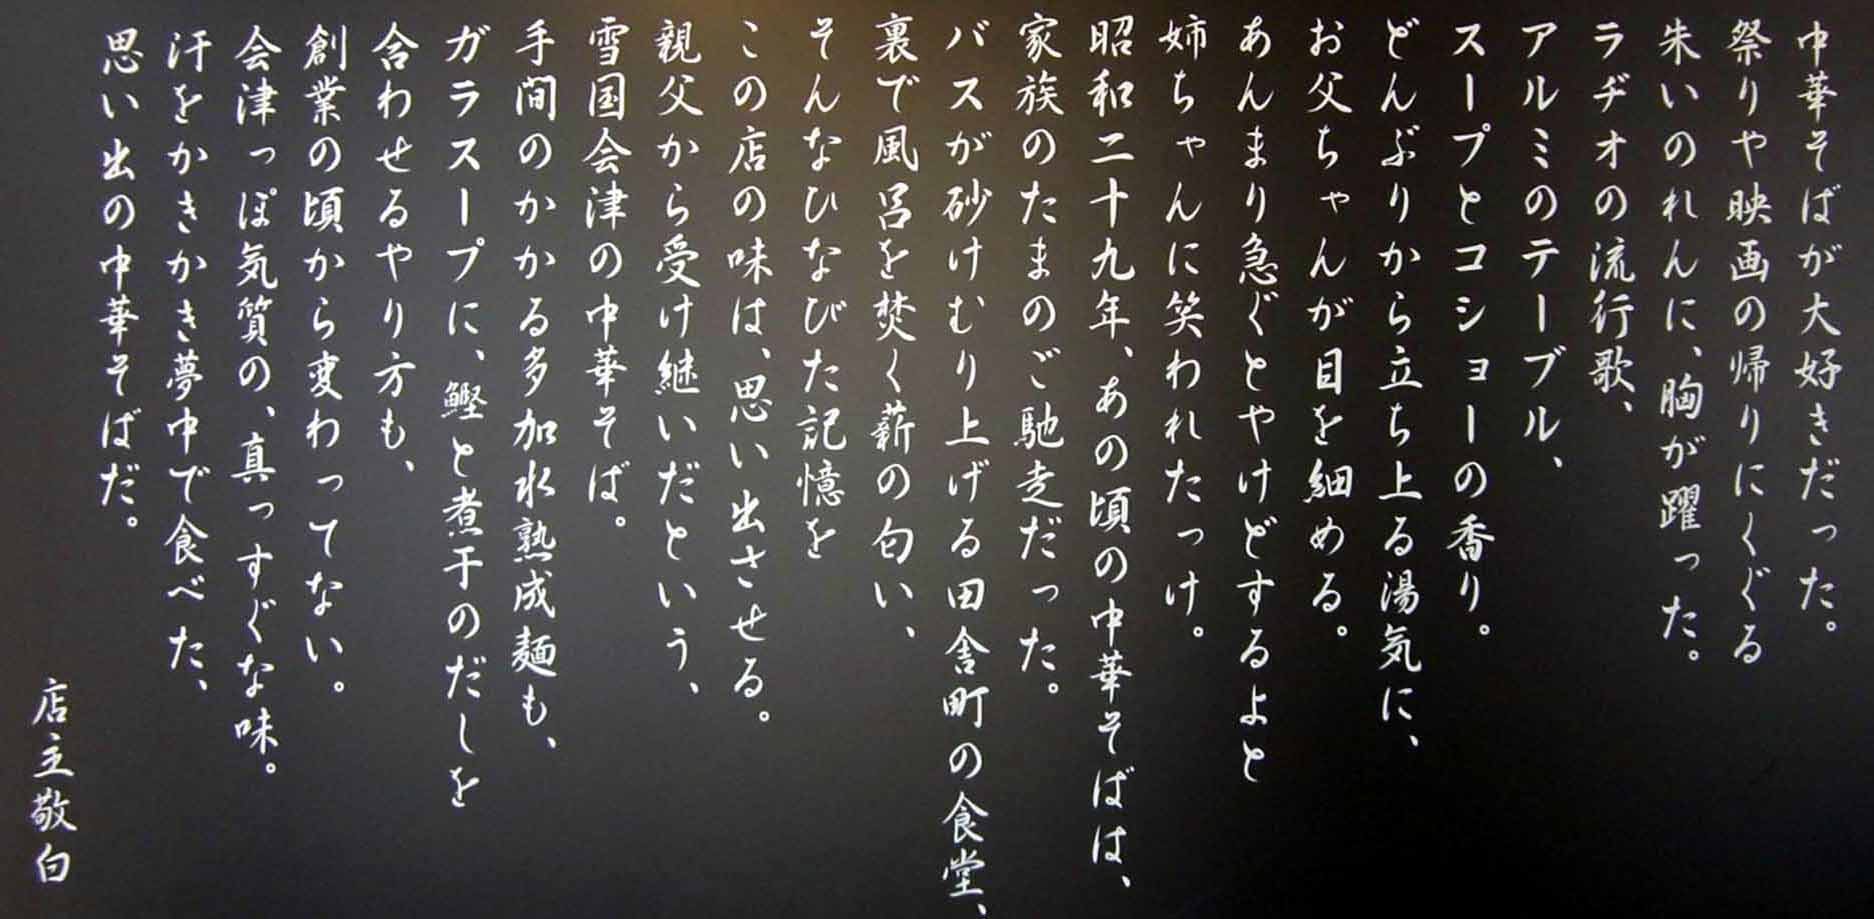 中華そばが大好きだった。
祭りや映画の帰りにくぐる
朱いのれんに、胸が躍った。
ラヂオの流行歌、
アルミのテーブル、
スープとコショーの香り。
どんぶりから立ち上る湯気に、
お父ちゃんが目を細める。
あんまり急ぐとやけどするよと
姉ちゃんに笑われたっけ。
昭和二十九年、あの頃の中華そばは、
家族のたまのご馳走だった。
バスが砂けむり上げる田舎町の食堂、
裏で風呂を焚く薪の匂い、
そんなひなびた記憶を
この店の味は、思い出させる。
親父から受け継いだという、
雪国会津の中華そば。
手間のかかる多加水熟成麺も、
ガラスープに、鰹と煮干のだしを
合わせるやり方も、
創業の頃から変わってない。
会津っぽ気質の、真っすぐな味。
汗をかきかき夢中で食べた、
思い出の中華そばだ。
店主敬白